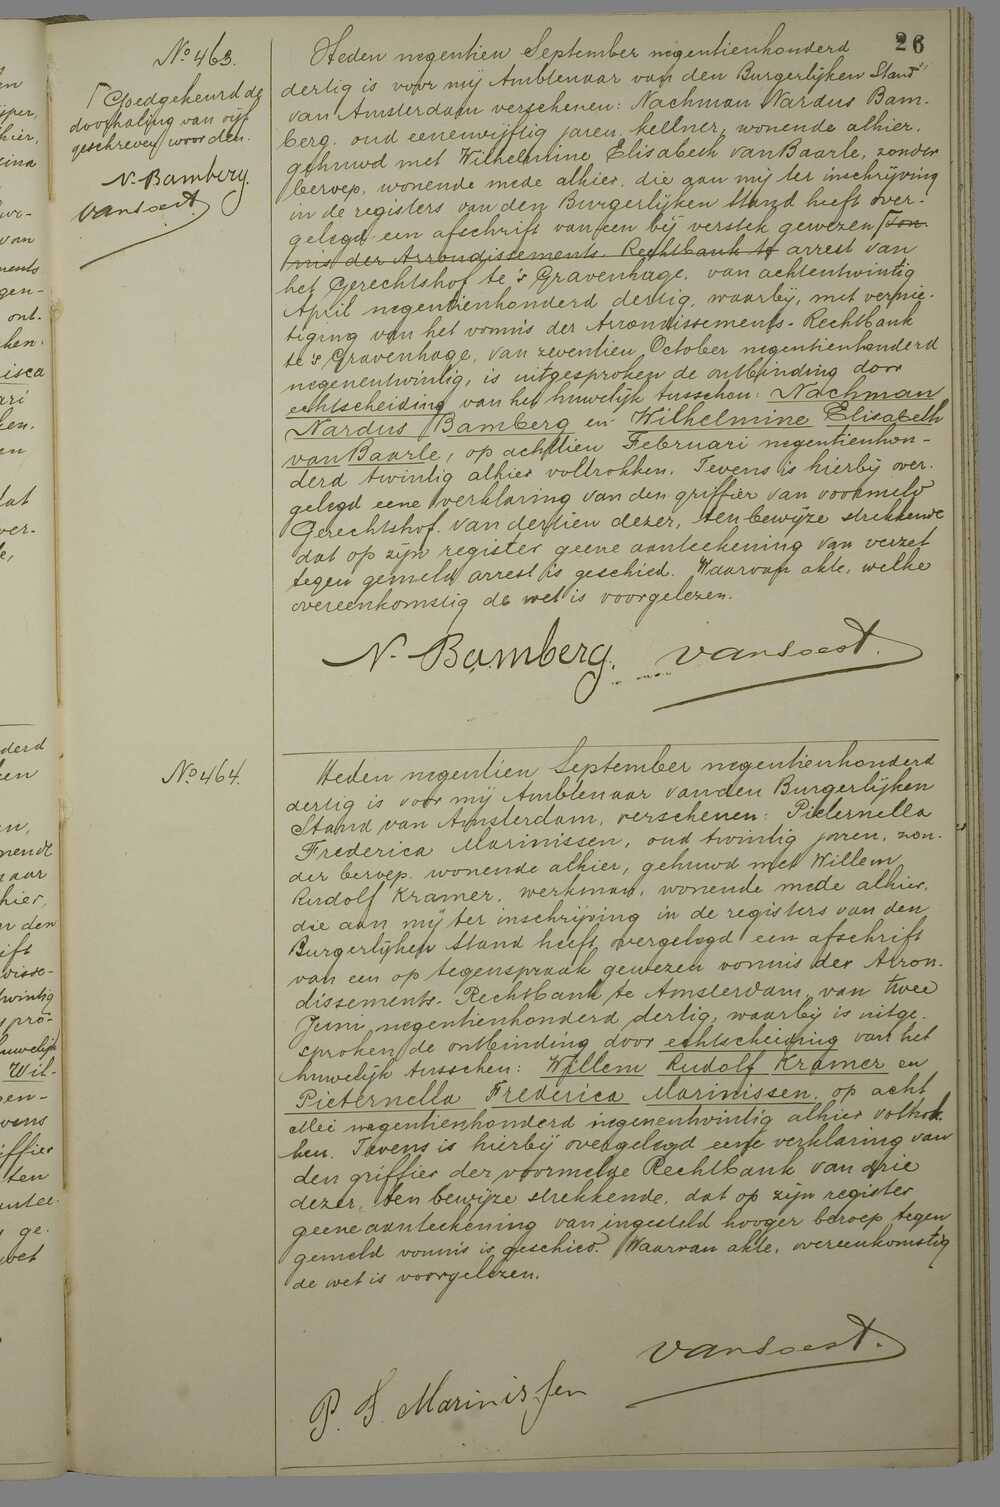 26
No 463.
Goedgekeurd de
doorhaling van vijf
geschreven woorden.
N. Bamberg.
van Soest.
Heden negentien September negentienhonderd
dertig is voor mij Ambtenaar van den Burgerlijken Stand
van Amsterdam verschenen: Nachman Nardus Bam-
berg, oud eenenvijftig jaren, kellner, wonende alhier,
gehuwd met Wilhelmine Elisabeth van Baarle, zonder
beroep, wonende mede alhier, die aan mij ter inschrijving
in de registers van den Burgerlijken Stand heeft over-
gelegd een afschrift van een bij verstek gewezen Von-
nis der Arrondissements-Rechtbank te arrest van
het Gerechtshof te 's Gravenhage, van achtentwintig
April negentienhonderd dertig, waarbij, met vernie-
tiging van het vonnis der Arrondissements-Rechtbank
te 's Gravenhage, van zeventien October negentienhonderd
negenentwintig, is uitgesproken de ontbinding door
echtscheiding van het huwelijk tusschen: Nachman
Nardus Bamberg en Wilhelmine Elisabeth
van Baarle, op achttien Februari negentienhon-
derd twintig alhier voltrokken. Tevens is hierbij over-
gelegd eene verklaring van den griffier van voormeld
Gerechtshof van dertien dezer, ten bewijze strekkende
dat op zijn register geene aanteekening van verzet
tegen gemeld arrest is geschied. Waarvan akte, welke
overeenkomstig de wet is voorgelezen.
N. Bamberg. van Soest.
No 464.
Heden negentien September negentienhonderd
dertig is voor mij Ambtenaar van den Burgerlijken
Stand van Amsterdam, verschenen: Pieternella
Frederica Marinissen, oud twintig jaren, zon-
der beroep, wonende alhier, gehuwd met Willem
Rudolf Kramer, werkman, wonende mede alhier,
die aan mij ter inschrijving in de registers van den
Burgerlijken Stand heeft overgelegd een afschrift
van een op tegenspraak gewezen vonnis der Arron-
dissements-Rechtbank te Amsterdam, van twee
Juni negentienhonderd dertig, waarbij is uitge-
sproken de ontbinding door echtscheiding van het
huwelijk tusschen: Willem Rudolf Kramer en
Pieternella Frederica Marinissen, op acht
Mei negentienhonderd negenentwintig alhier voltrok-
ken. Tevens is hierbij overgelegd eene verklaring van
den griffier der voormelde Rechtbank van drie
dezer, ten bewijze strekkende, dat op zijn register
geene aanteekening van ingesteld hooger beroep tegen
gemeld vonnis is geschied. Waarvan akte, overeenkomstig
de wet is voorgelezen.
van Soest.
P. F. Marinissen